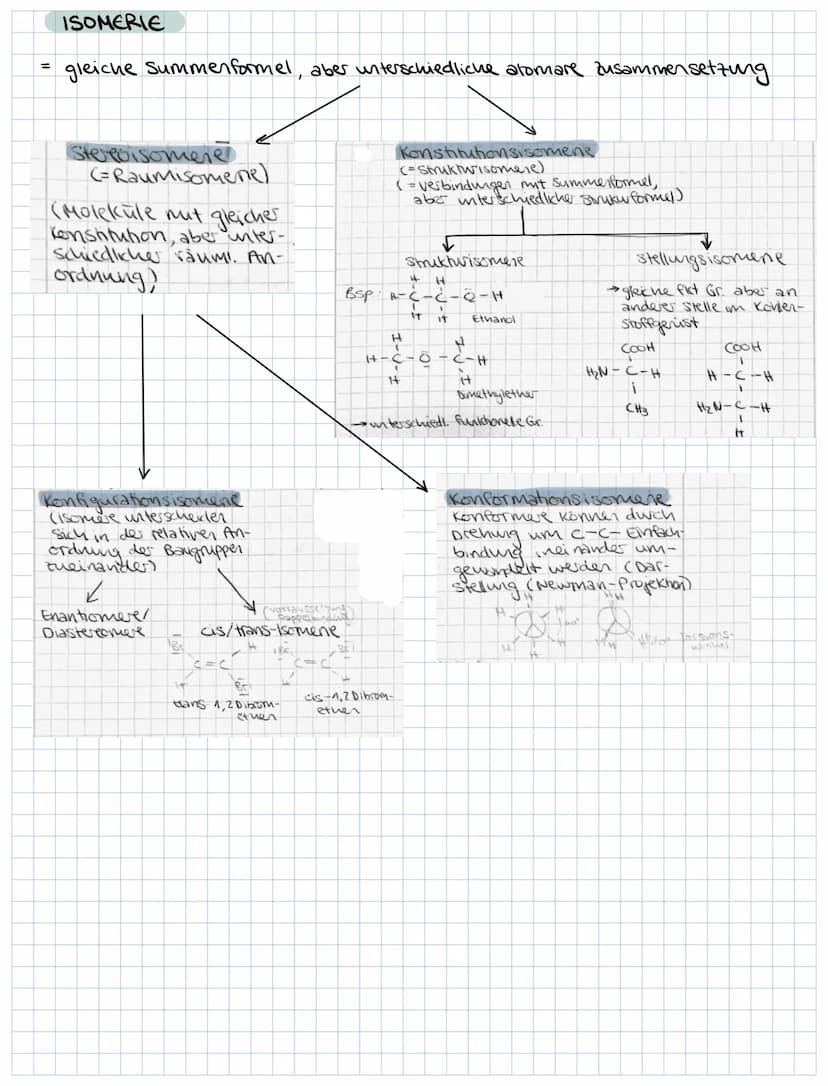 ISOMERIE
= gleiche Summenformel, aber unterschiedliche atomare Zusammensetzung
Stereoisomere
(=Raumisomere)
(Moleküle mit gleicher
Konstitution, aber unter-
schiedlicher räuml. An-
ordnung)
Konstitutionsisomere
(=Strukturisomere)
(=Verbindungen mit Summenformel,
aber unterschiedlicher Strukturformel)
Strukturisomere
Bsp:
H H
H-C-C-O-H
H H
Ethanol
H H
H-C-O-C-H
H H
Dimethylether
→unterschiedl. funktionelle Gr.
Stellungsisomere
→gleiche fkt Gr. aber an
anderer Stelle im Kohlen-
stoffgerüst
COOH
H2N-C-H
CH3
COOH
H-C-H
H2N-C-H
H
Konfigurationsisomere
(Isomere unterscheiden
sich in der relativen An-
ordnung der Baugruppen
zueinander)
Enantiomere/
Diastereomere
cis/trans-Isomere
Br H
C=C
H Br
trans-1,2 Dibrom-
ethen
Br Br
C=C
H H
cis-1,2 Dibrom-
ethen
Konformationsisomere
Konformere können durch
Drehung um C-C- Einfach-
bindung ineinander um-
gewandelt werden (Dar-
stellung (Newman-Projektion)
H
H H
H H
H
HH
HH